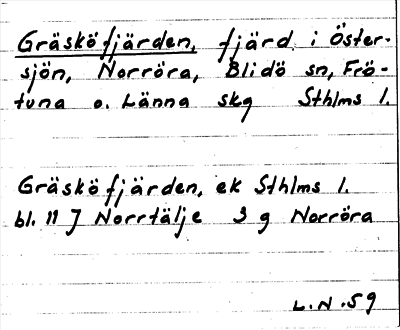 Gräsköfjärden, fjärd i Öster-
sjön, Norröra, Blidö sn, Frö-
tuna o. Länna skg Sthlms l.
Gräsköfjärden, ek Sthlms l.
bl. 11 J Norrtälje 3 g Norröra
L.N.59